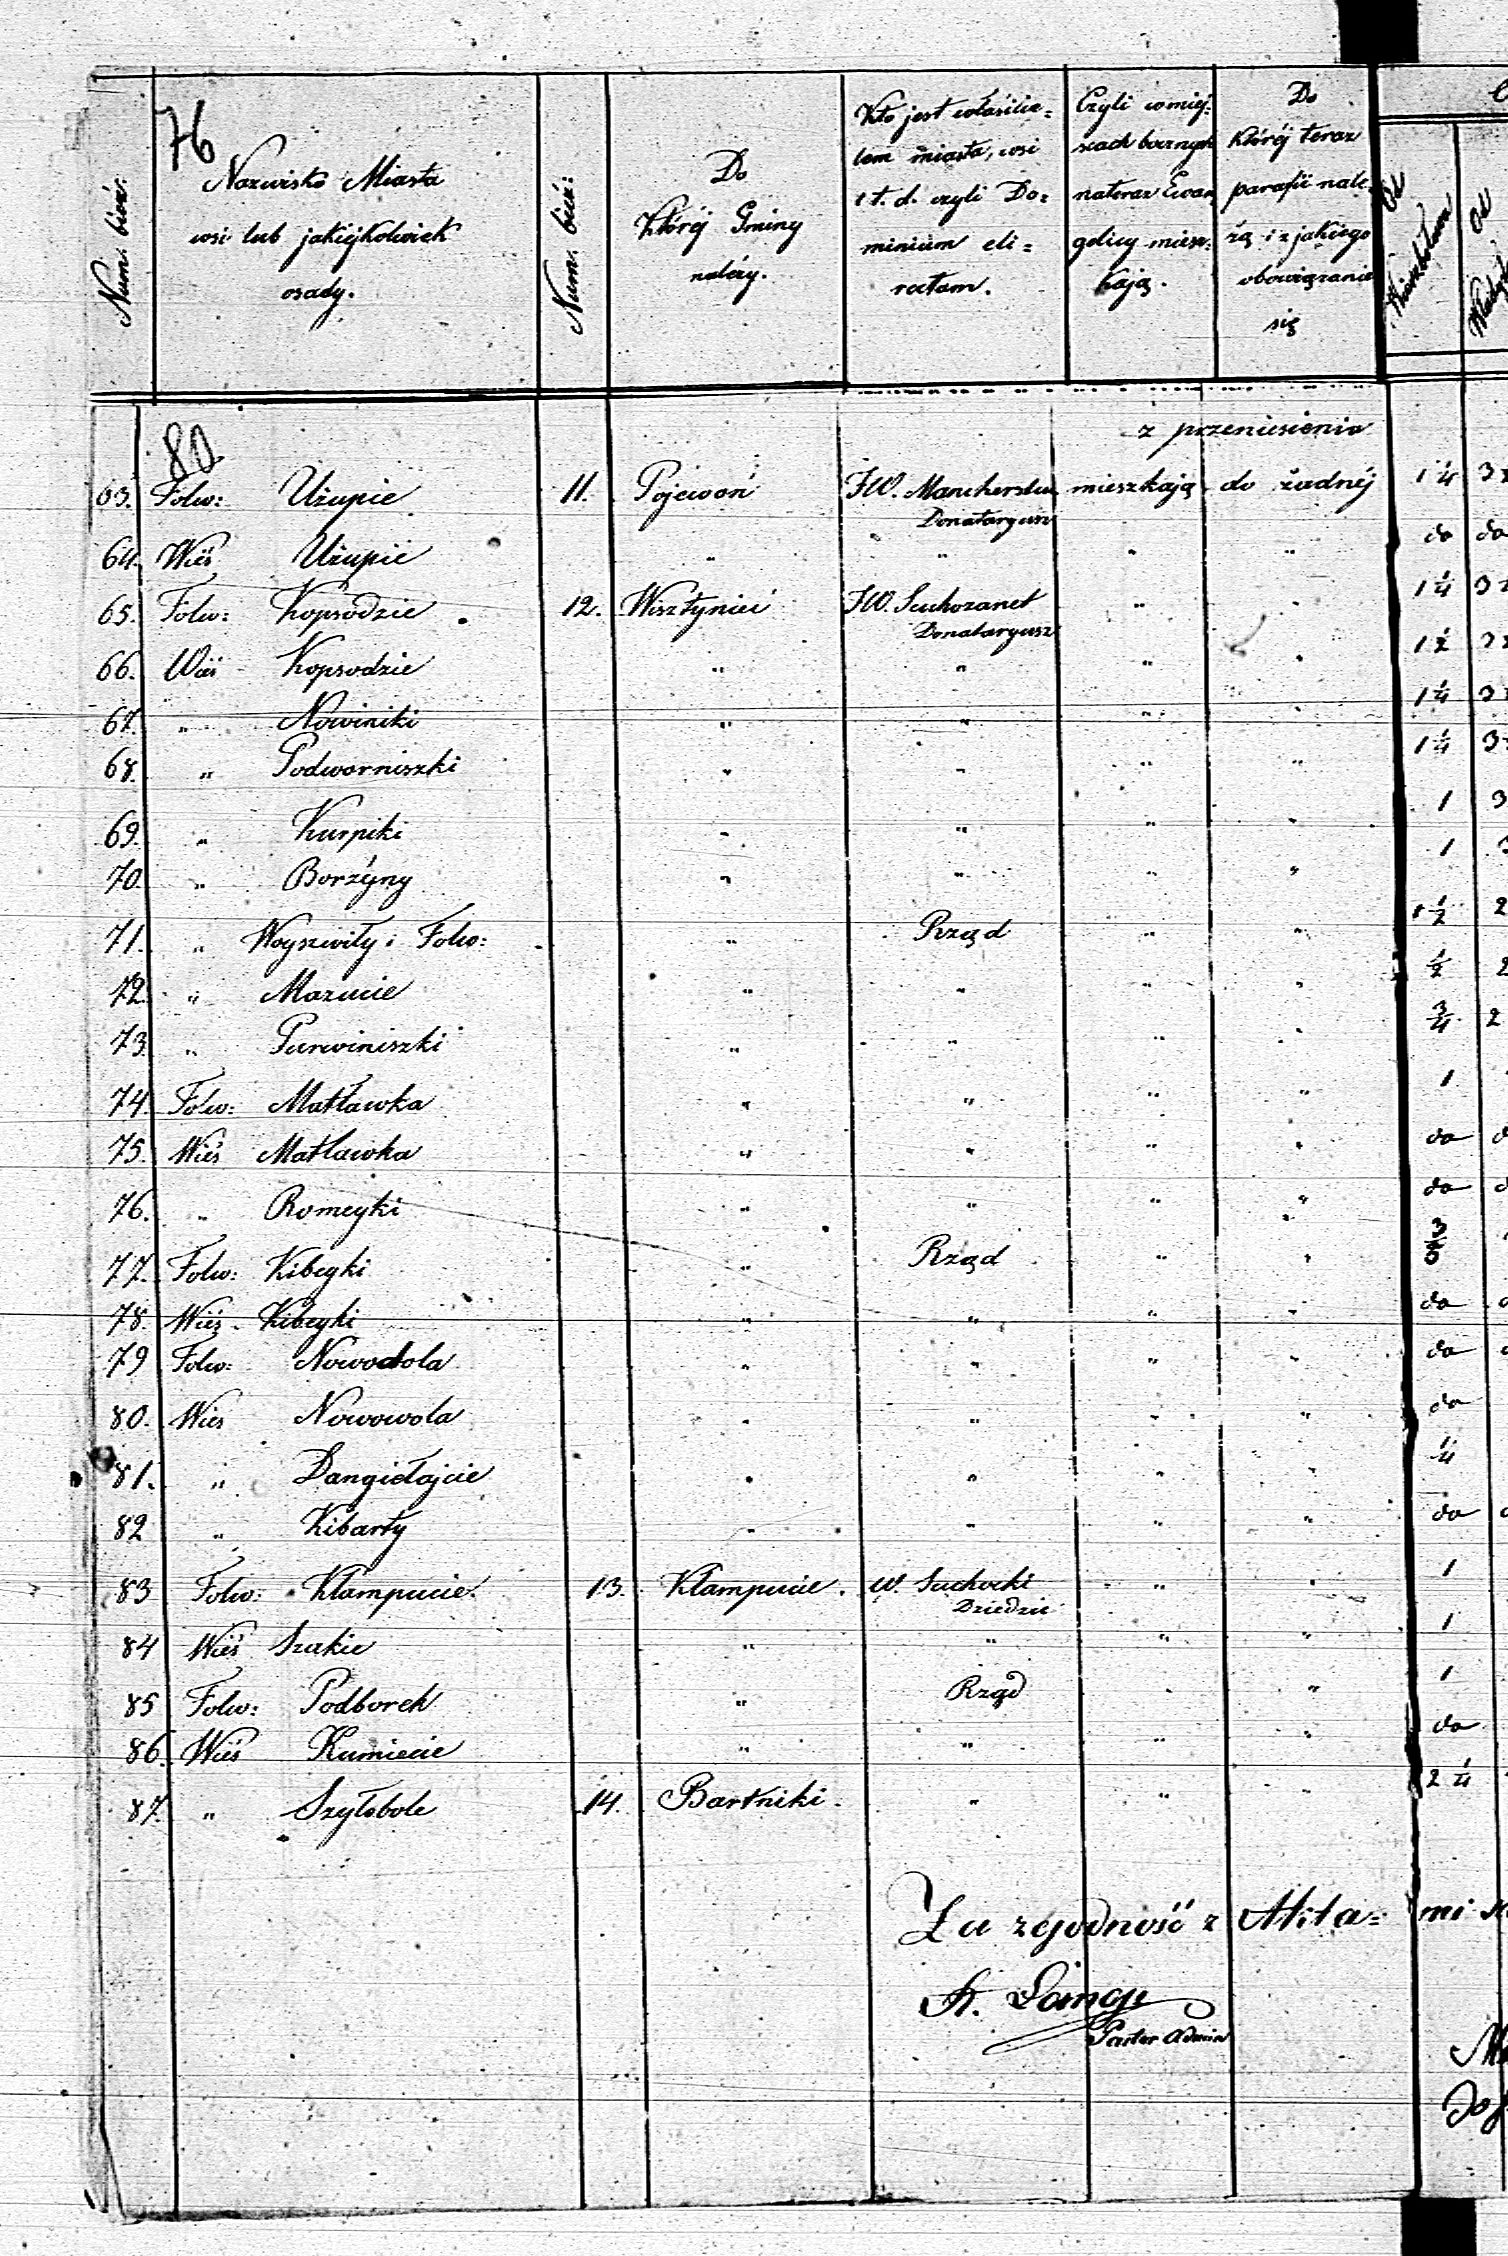 76
Num. bież:
Nazwisko Miasta
wsi lub jakiéjkolwiek
osady.
Num. bież:
Do
któréj Gminy
należy.
Kto jest właścicie=
lem miasta, wsi
i t. d. czyli Do=
minium eli=
ratam.
Czyli w miéj=
scach
nateraz Ewan
gelicy miesz=
kają.
Do
któréj teraz
parafii nale
żą i z jakiego
obowiązania
się
Od
Od
80
z przeniesienia
63. Folw: Użupie 11. Pojewoń JW. Mancherslu mieszkają do żadnéj 1 1/4 3
Donataryusz
64. Wieś Użupie " " " " do do
65. Folw: Kopsodzie 12. Wisztyniec JW. Suchozanet " " 1 1/4 3
Donataryusz
66. Wieś Kopsodzie " " " " 1 1/2 3
67. " Nowiniki " " " " 1 1/4 3
68. " Podworniszki " " " " 1 1/4 3
69. " Kurpiki " " " " 1 3
70. " Borzyny " " " " 1 3
71. " Woyszwiły i Folw: " Rząd " " 1 1/2 2
72. " Mazucie " " " " 1/2 2
73. " Purwiniszki " " " 3/4 2
74. Folw: Matławka " " " " 1
75. Wieś Matlawka " " " " do
76. " Romeyki " " " " do
77. Folw: Kibeyki " Rząd " "
78. Wieś Kibeyki " " " " do
79 Folw: Nowodola " " " " do
80. Wies Nowowola " " " " do
81. " Dangiełajcie " " " " 1/4
82 " Kibarty " " " " do
83 Folw: Kłampucie. 13. Kłampucie. W. Suchocki " " 1
Dziedzic
84 Wieś Szakie " " " " 1
85 Folw: Podborek " Rząd " " 1
86. Wieś Kumiecie " " " " do
87. " Szyłobole 14. Bartniki. " " " 2 1/4
Za zgodność z Akta= mi
Pastor Admin